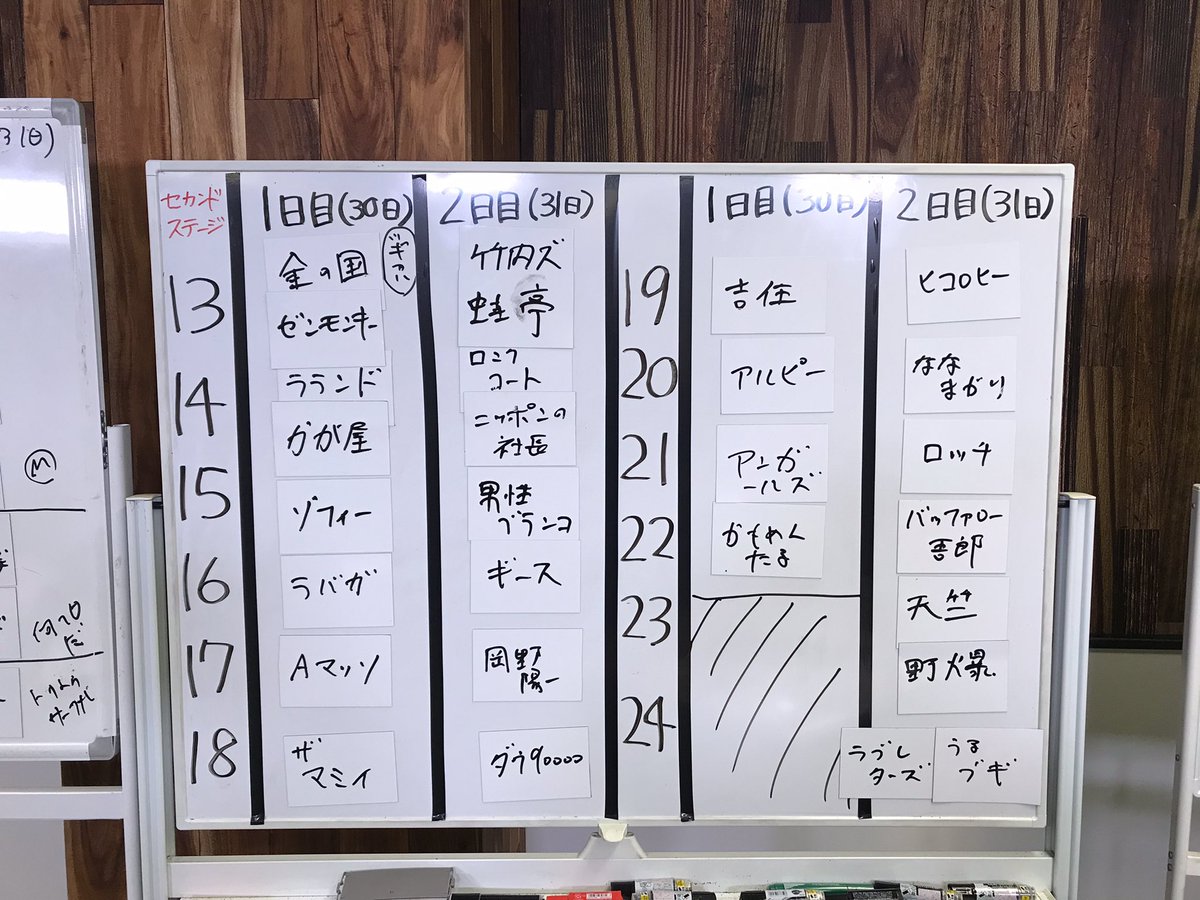 31日)
M
セカンド
ステージ
1日目(30日)
2日目(31日)
1日目(30日)
2日目(31日)
13
金の国
竹内ズ
ゼンモンキー
蛙亭
19
吉住
ヒコロヒー
14
ラランド
ロング
コート
かが屋
ニッポンの
社長
20
アルピー
なな
まがり
15
ゾフィー
男性
ブランコ
21
アンガ
ールズ
ロッチ
16
ラバガ
ギース
22
かもめん
たる
バッファロー
吾郎
17
Aマッソ
岡野
陽一
23
天竺
野犬爆
18
ザ
マミィ
ダウ90000
24
ラブレ
ターズ
うる
ブギ